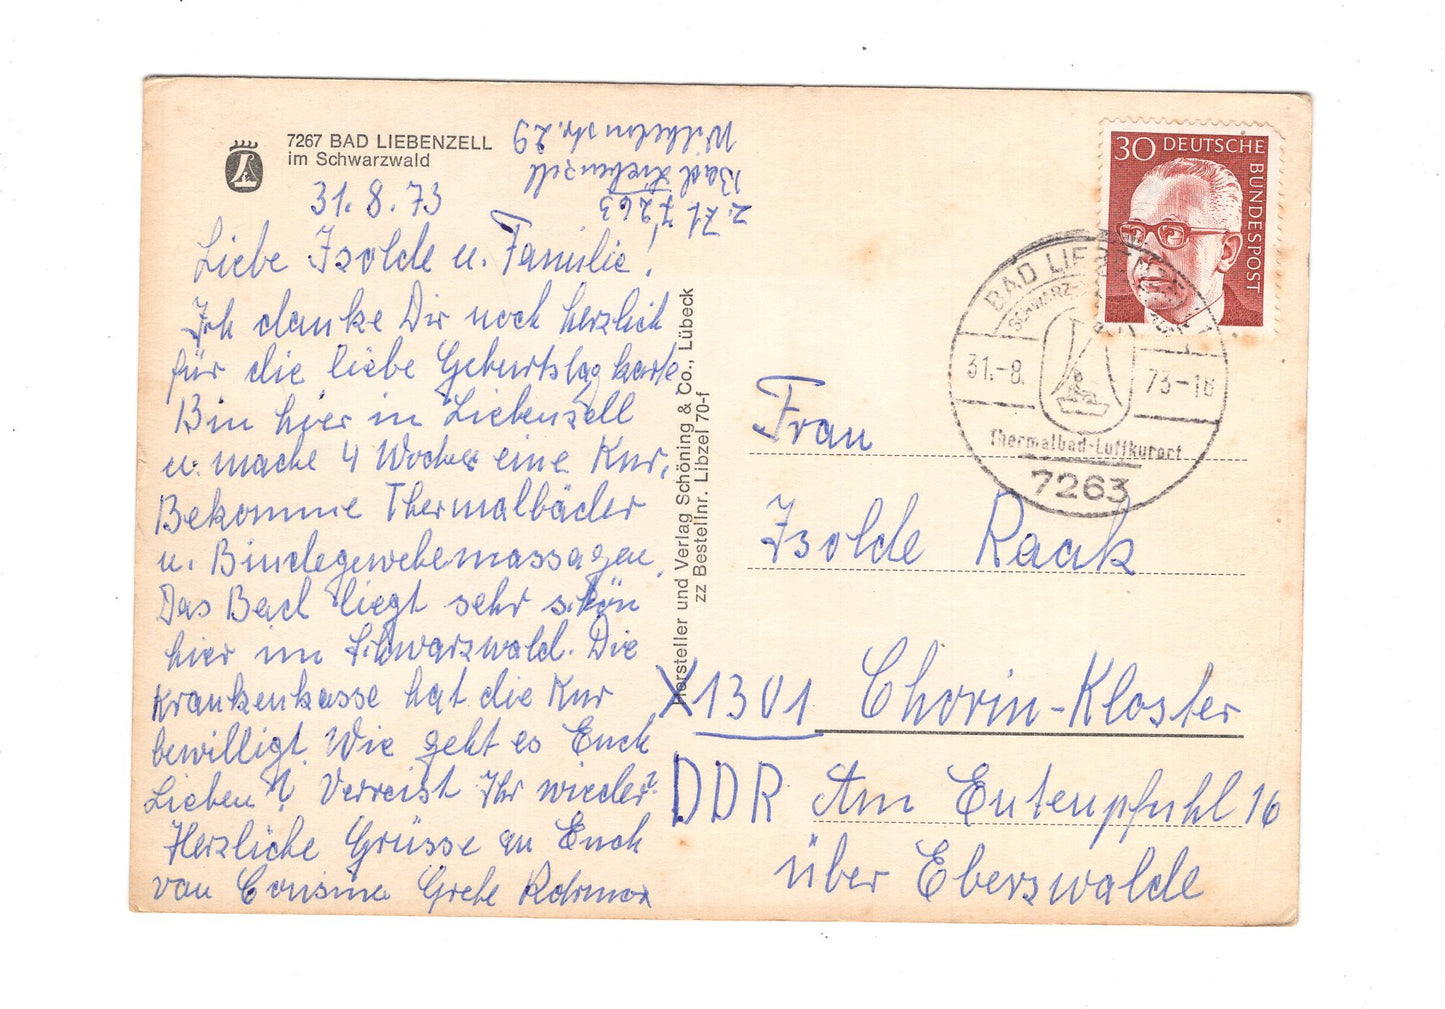 7267 BAD LIEBENZELL
im Schwarzwald
31.8.73
z.Zt. 7263
Bad Liebenzell
Wilhelmstr. 29
Liebe Isolde u. Familie!
Ich danke Dir noch herzlich
für die liebe Geburtstagkarte
Bin hier in Liebenzell
u. mache 4 Wochen eine Kur.
Bekomme Thermalbäder
u. Bindegewebemassagen.
Das Bad liegt sehr schön
hier im Schwarzwald. Die
Krankenkasse hat die Kur
bewilligt. Wie geht es Euch
Lieben? Verreist Ihr wieder?
Herzliche Grüsse an Euch
von Cousine Grete
Hersteller und Verlag Schöning & Co., Lübeck
zz Bestellnr. Libzel 70-f
30 DEUTSCHE
BUNDESPOST
BAD
SCHWARZ-
31.-8.
73-18
Thermalbad-Luftkurort
7263
Frau
Isolde Raak
X1301 Chorin-Kloster
DDR Am Entenpfuhl 16
über Eberswalde